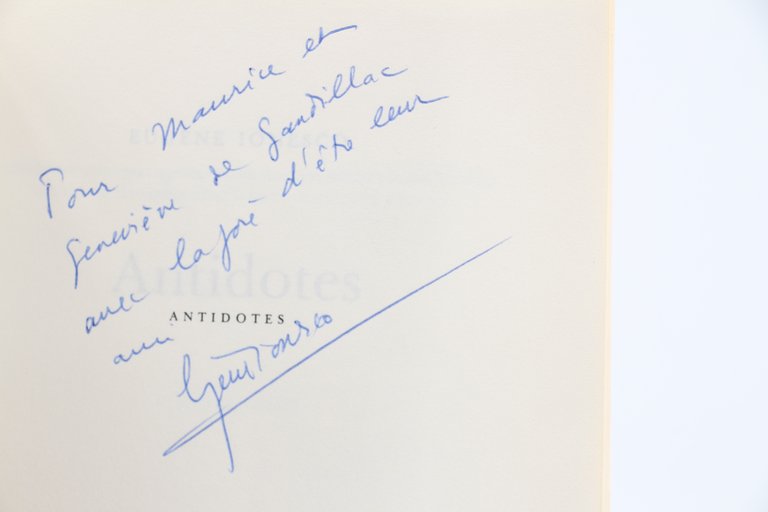 Pour Maurice et
Geneviève de Gandillac
avec la joie d'être leur
ami
EUGÈNE IONESCO
Antidotes
ANTIDOTES
Eugène Ionesco